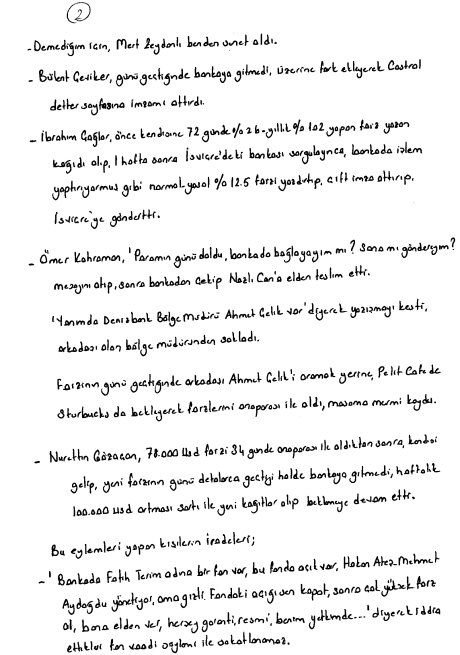 2
- Demediğim için, Mert Zeydanlı benden senet aldı.
- Bülent Çeviker, günü geçtiğinde bankaya gitmedi, üzerine fark ekleyerek Castrol
defter sayfasına imzamı attırdı.
- İbrahim Çağlar, önce kendisine 72 günde % 26 - yıllık % 102 yapan faiz yazan
kağıdı alıp, 1 hafta sonra İsviçre'deki bankası sorgulayınca, bankada işlem
yaptırıyormuş gibi normal yasal % 12.5 faizi yazdırtıp, çift imza attırıp,
İsviçre'ye gönderтti.
- Ömer Kahraman, 'Paramın günü doldu, bankada bağlayayım mı? Sana mı göndereyim?
mesajını atıp, sonra bankadan çekip Nazlı Can'a elden teslim etti.
'Yanımda Denizbank Bölge Müdürü Ahmet Çelik var' diyerek yazışmayı kesti,
arkadaşı olan bölge müdüründen sakladı.
Faizinin günü geçtiğinde arkadaşı Ahmet Çelik'i aramak yerine, Pelit Cafe de
Sturbucks da bekleyerek faizlerini anaparası ile aldı, masama mermi koydu.
- Nurettin Gözaçan, 78.000 Usd faizi 34 günde anaparası ile aldıktan sonra, kendisi
gelip, yeni faizinin günü defalarca geçtiği halde bankaya gitmedi, haftalık
100.000 usd artması şartı ile yeni kağıtlar alıp beklemeye devam etti.
Bu eylemleri yapan kişilerin ifadeleri;
- ' Bankada Fatih Terim adına bir fon var, bu fonda açık var, Hakan Ateş - Mehmet
Aydoğdu yönetiyor, ama gizli. Fondaki açığı sen kapat, sonra çok yüksek faiz
al, bana elden ver, herşey garanti, resmi, benim yetkimde...' diyerek iddia
ettikleri fon vaadi söylemi ile